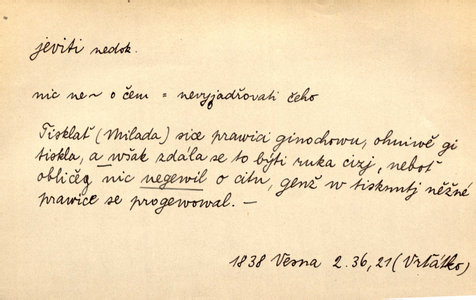 jeviti nedok.
nic ne~ o čem = nevyjadřovati čeho
Tisklať (Milada) sice prawici ginochowu, ohniwě gi
tiskla, a wšak zdála se to býti ruka cizj, neboť
obličeg nic negewil o citu, genž w tisknutj něžné
prawice se progewowal. —
1838 Vesna 2.36,21 (Vrťátko)